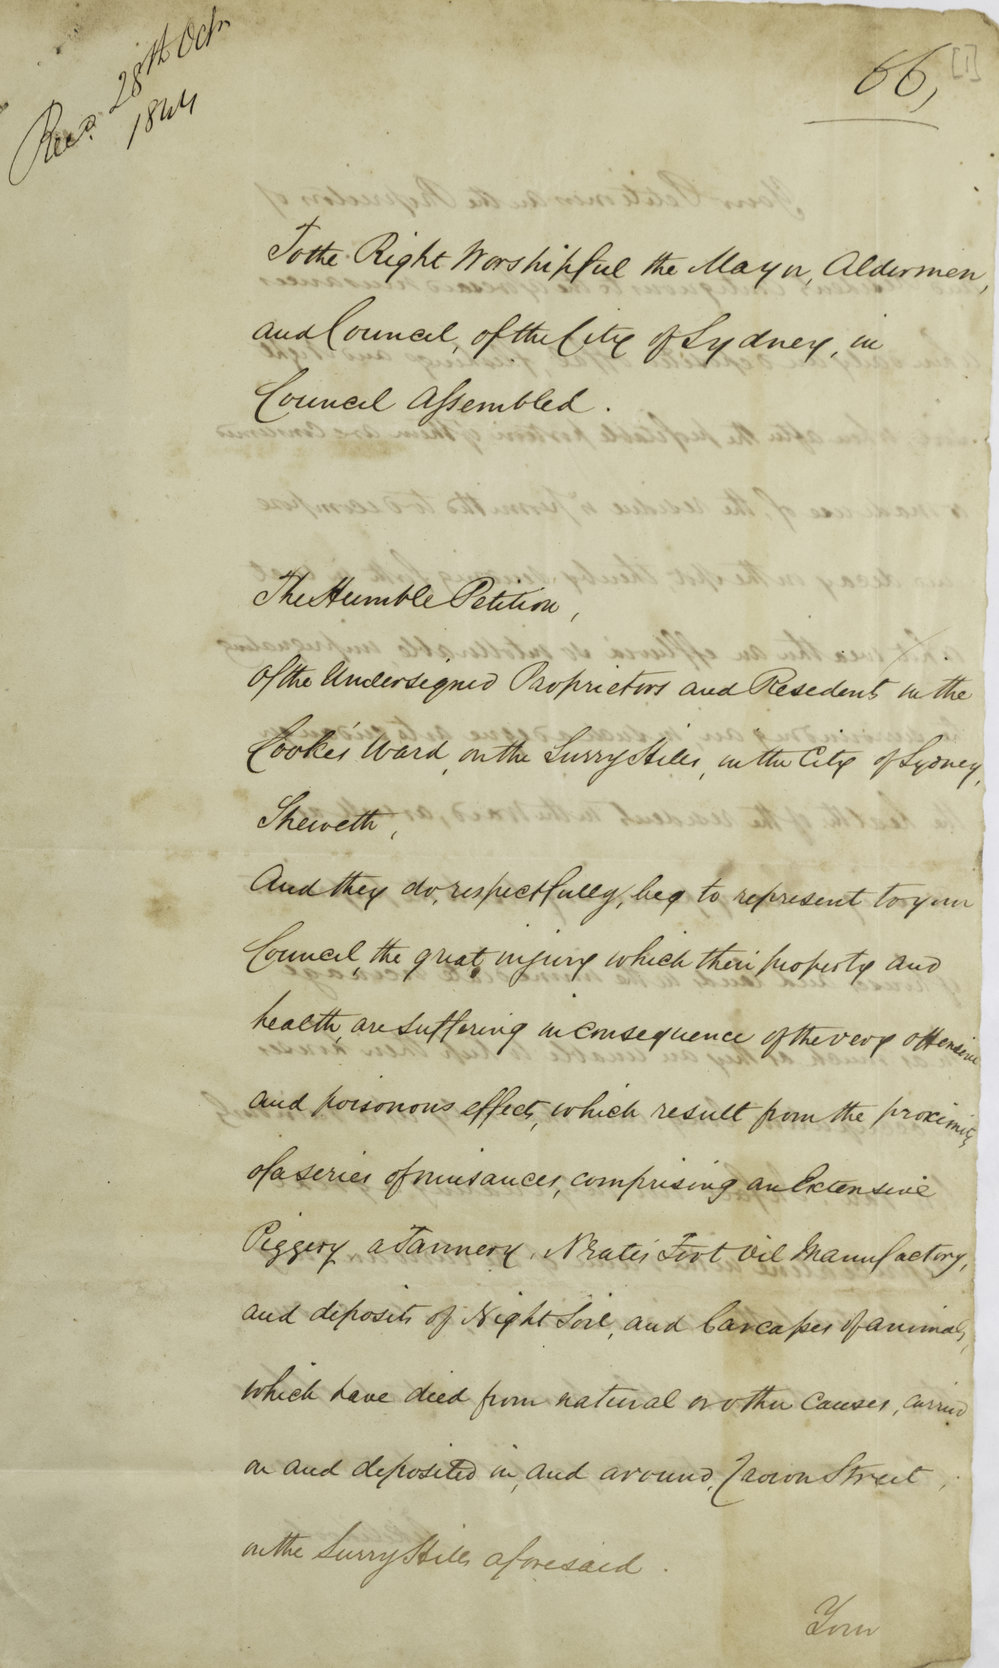 Recd. 28th Octr
1844
66,
[1]
To the Right Worshipful the Mayor, Aldermen,
and Council, of the City of Sydney, in
Council Assembled.
The Humble Petition,
Of the Undersigned Proprietors and Resedents in the
Cooke's Ward, on the Surry Hills, in the City of Sydney,
Sheweth,
And they do, respectfully, beg to represent to your
Council, the great injury which their property and
health, are suffering in consequence of the very offensive
and poisonous effects, which result from the proximity
of a series of nuisances, comprising an Extensive
Piggery a Tannery, Neats Foot Oil Manufactory,
and deposits of Night Soil, and Carcases of animals,
which have died from natural or other causes, carried
on and deposited in, and around, Crown Street,
on the Surry Hills aforesaid.
Your